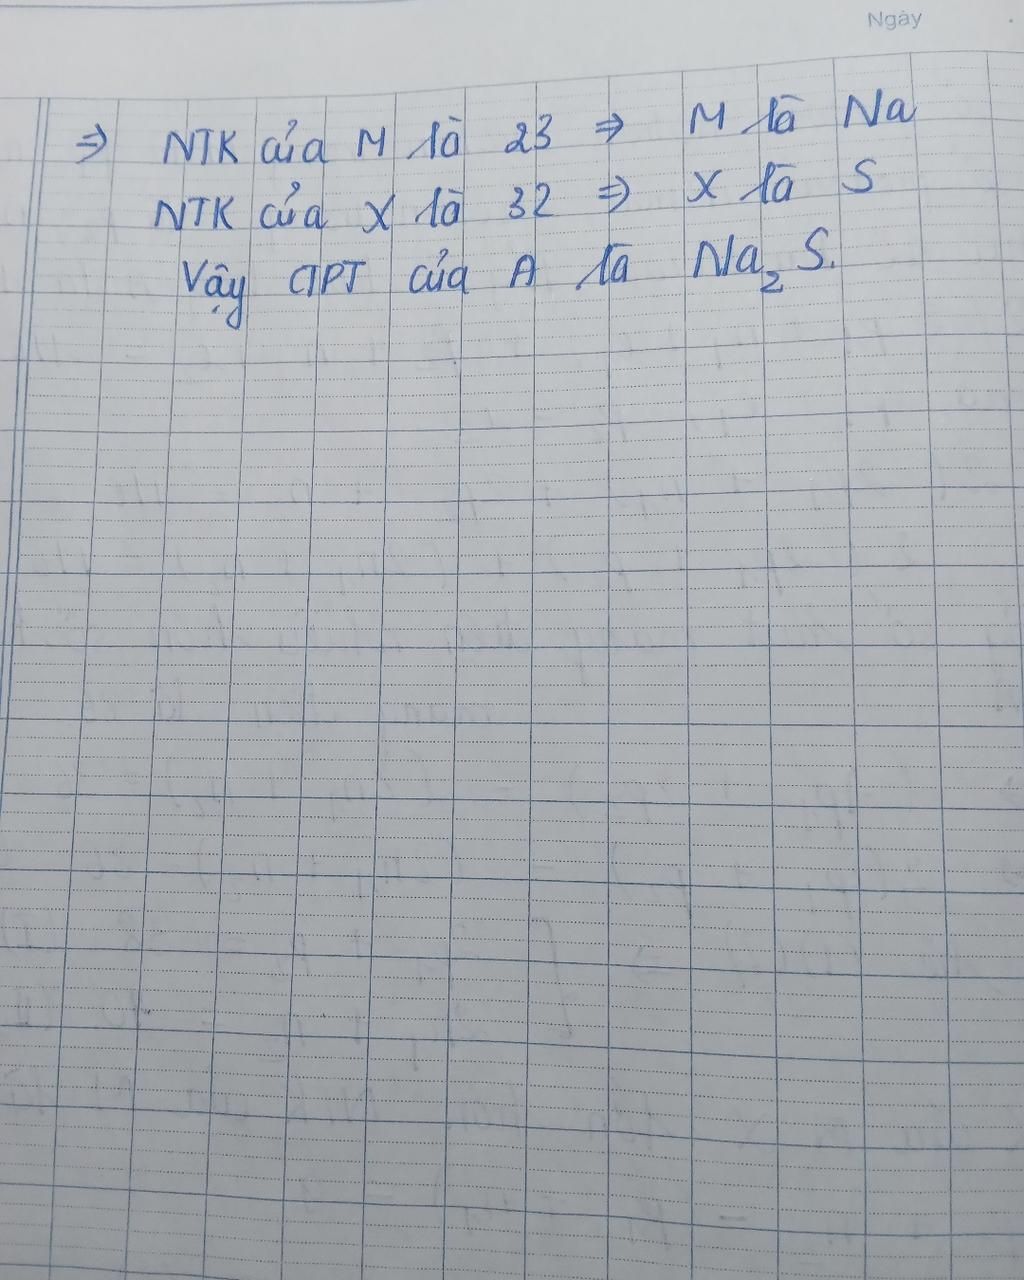 Ngày
⇒ NTK của M là 23 ⇒ M là Na
NTK của X là 32 ⇒ X là S
Vậy CTPT của A là Na₂S.